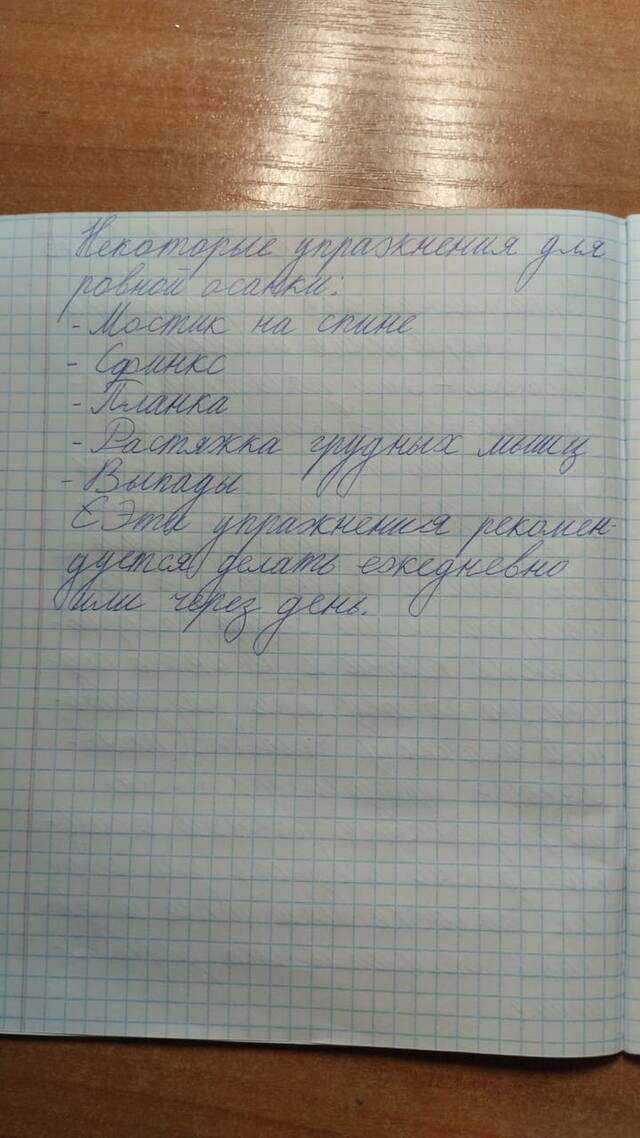 Некоторые упражнения для
ровной осанки:
- Мостик на спине
- Сфинкс
- Планка
- Растяжка грудных мышц
- Выпады
Эти упражнения рекомен-
дуется делать ежедневно
или через день.